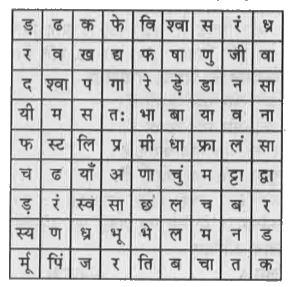 ड़ ढ क फे वि श्वा स रं ध्र
र व ख द्य फ षा णु जी वा
द श्वा प गा रे ड़े डा न सा
यी म स तः भा बा या व ना
फ स्ट लि प्र मी धा फ्रा लं सा
च ढ याँ अ णा चुं म ट्टा द्वा
ड़ रं स्वं सा छं ल च ब र
स्य ण ध्र भू भे ल म न ड
र्मू पिं ज र ति ब चा त क